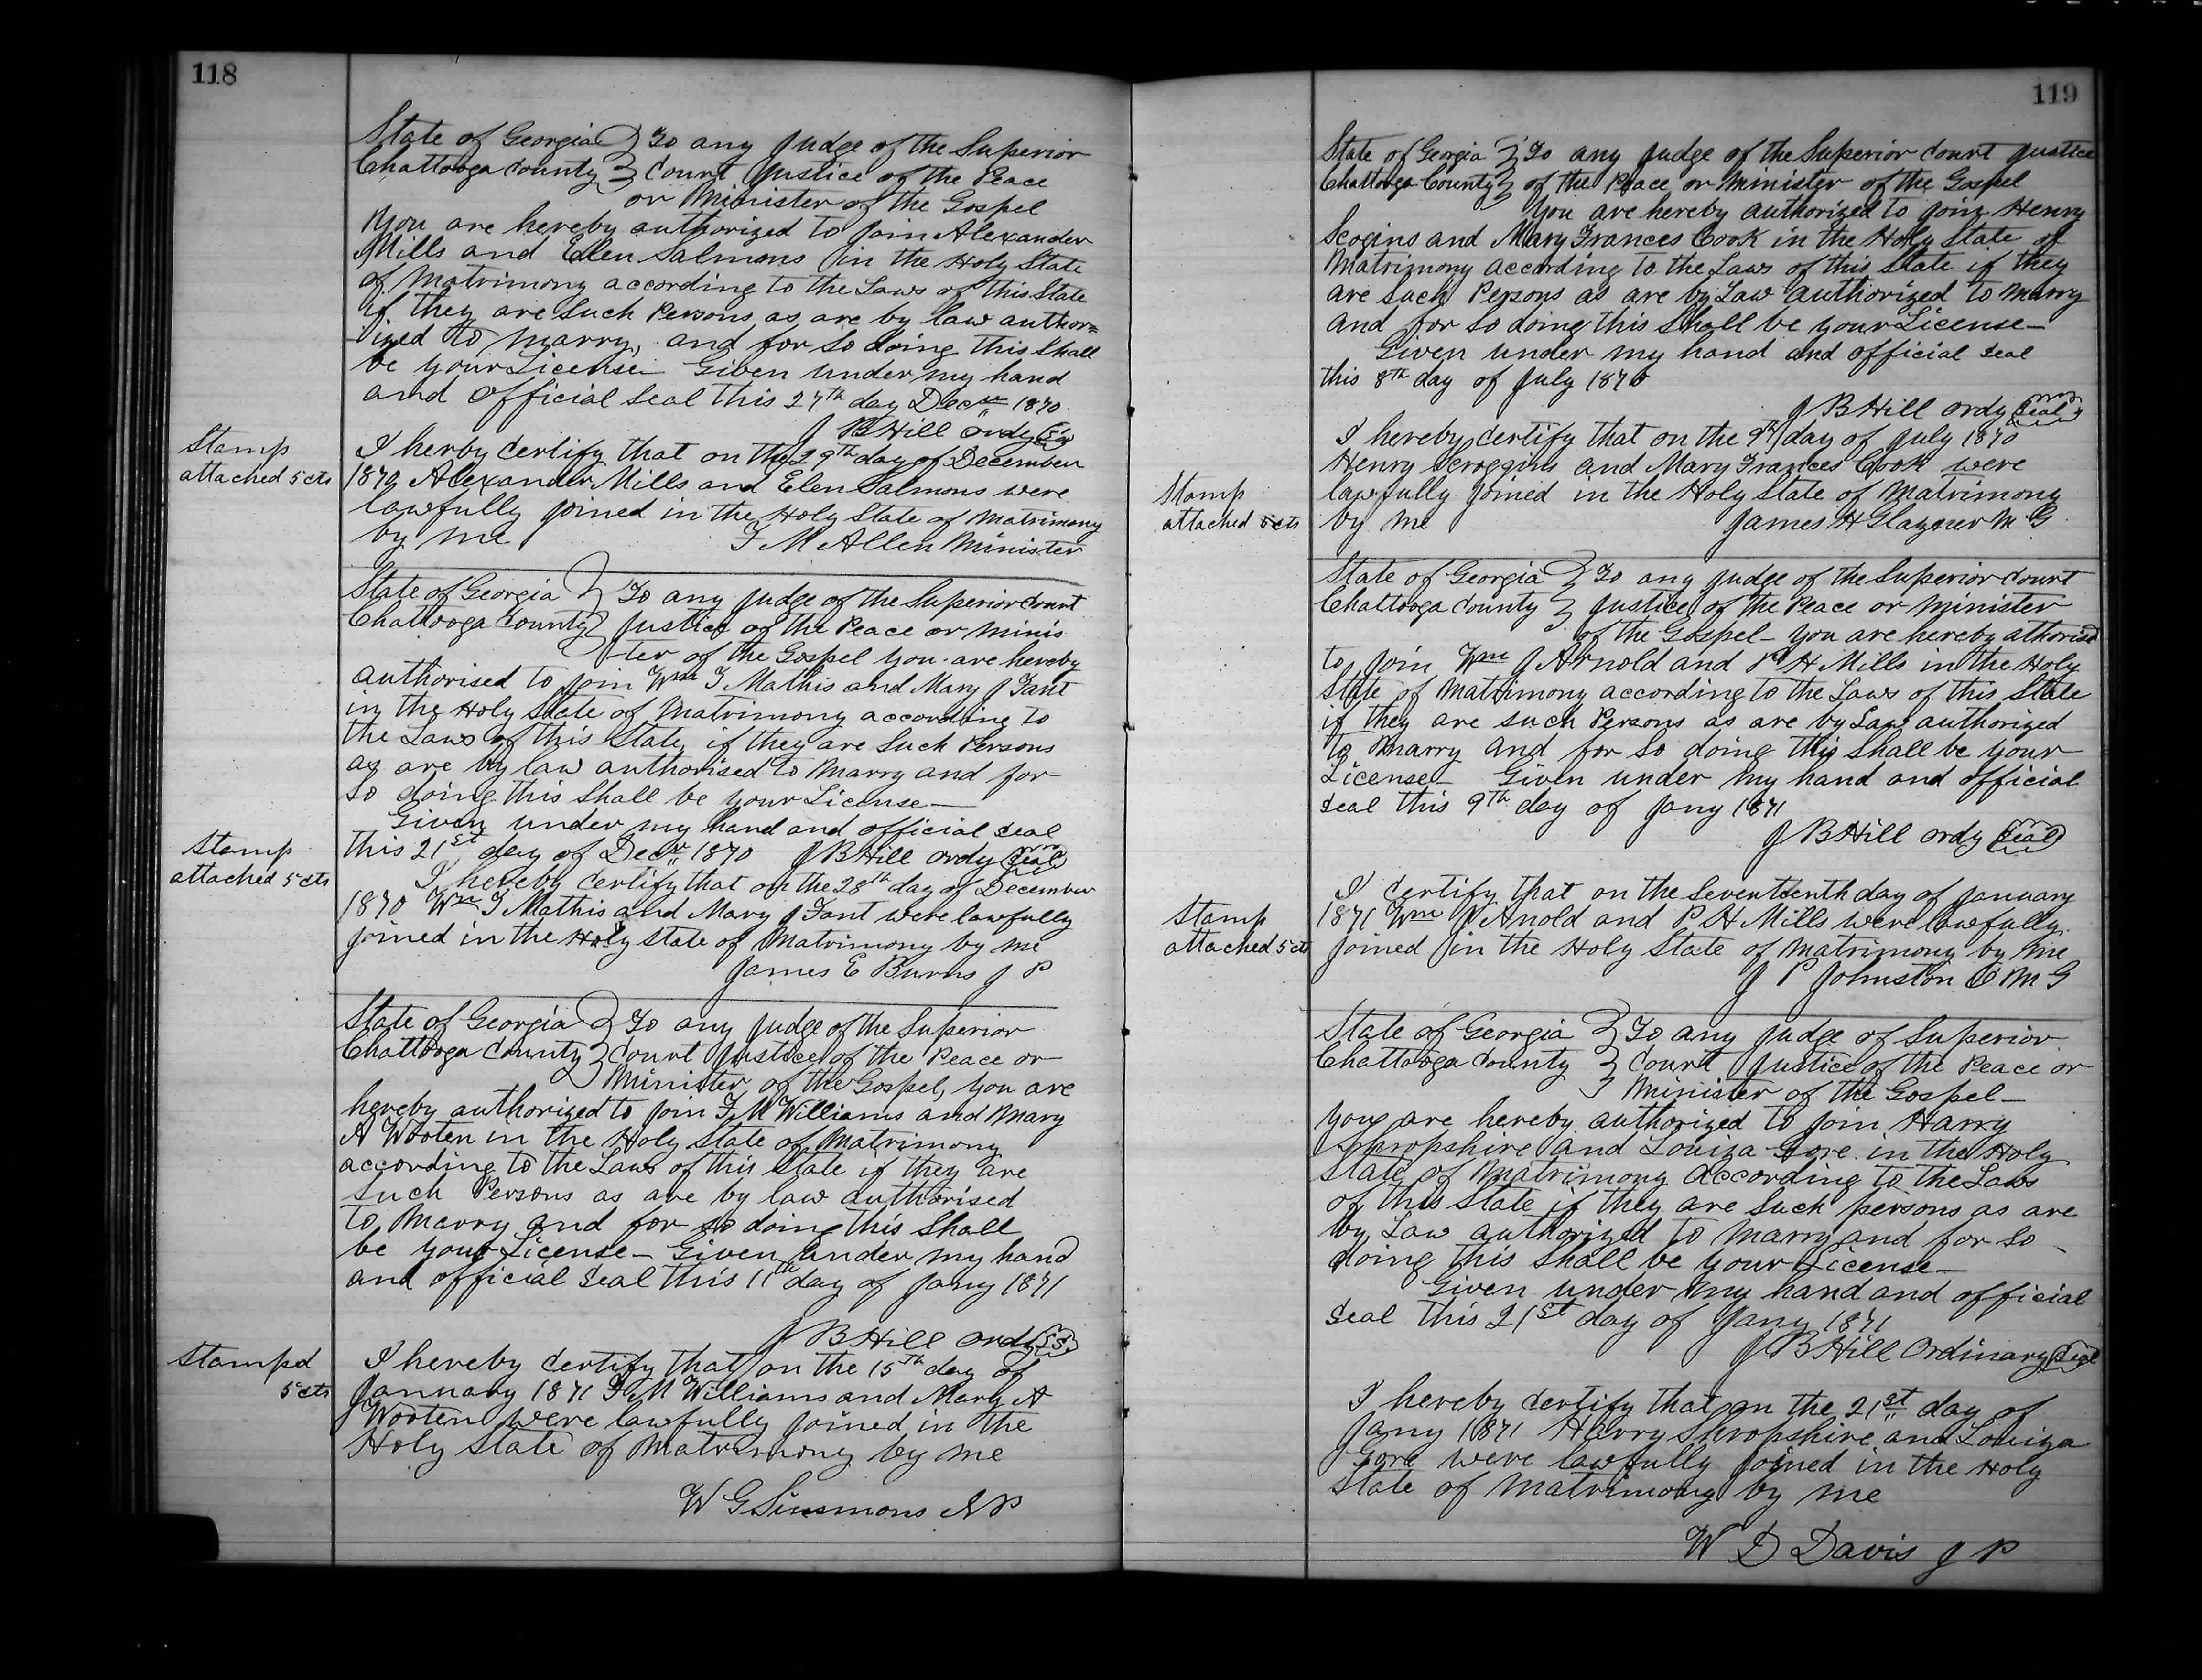 118
State of Georgia } To any Judge of the Superior
Chattooga County } Court Justice of the Peace
or Minister of the Gospel
You are hereby authorized to Join Alexander
Mills and Elen Salmons in the Holy State
of Matrimony according to the Laws of this State
if they are Such Persons as are by law author=
-ized to marry, and for so doing this Shall
be your License Given under my hand
and Official Seal this 27th day Decr 1870.
J B Hill Ordy
Stamp
attached 5 cts
I herby certify that on the 29th day of December
1870 Alexander Mills and Elen Salmons were
lawfully joined in the Holy State of Matrimony
by me T M Allen Minister
State of Georgia } To any Judge of the Superior Court
Chattooga County } Justice of the Peace or Minis
ter of the Gospel you are hereby
authorised to join Wm T Mathis and Mary J Fant
in the Holy State of Matrimony according to
the Laws of this State, if they are Such Persons
as are by law authorised to Marry and for
so doing this Shall be your License—
Given under my hand and official seal
this 21st day of Decr 1870 J B Hill Ordy Seal
Stamp
attached 5 cts
I hereby certify that on the 28th day of December
1870 Wm T Mathis and Mary J Fant were lawfully
joined in the Holy State of Matrimony by me
James E Burns J P
State of Georgia } To any Judge of the Superior
Chattooga County } Court Justice of the Peace or
Minister of the Gospel, you are
hereby authorized to join F M Williams and Mary
A Wooten in the Holy State of Matrimony
according to the Laws of this State if they are
Such Persons as are by law authorised
to Marry and for so doing this Shall
be your License— Given under my hand
and official Seal this 11th day of Jany 1871
J B Hill Ordy
Stampd
5 cts
I hereby certify that on the 15th day of
January 1871 F M Williams and Mary A
Wooten were lawfully joined in the
Holy State of Matrimony by me
W G Simmons N P
119
State of Georgia } To any Judge of the Superior Court Justice
Chattooga County } of the Peace or Minister of the Gospel
You are hereby authorized to join Henry
Scogins and Mary Frances Cook in the Holy State of
Matrimony according to the Laws of this State if they
are such Persons as are by Law authorized to Marry
and for so doing this Shall be your License—
Given under my hand and official Seal
this 8th day of July 1870
J B Hill Ordy Seal
I hereby certify that on the 9th day of July 1870
Henry Scroggins and Mary Frances Cook were
lawfully joined in the Holy State of Matrimony
by me James H Glazner M. G.
Stamp
attached 5 cts
State of Georgia } To any Judge of the Superior Court
Chattooga County } Justice of the Peace or Minister
of the Gospel— you are hereby athorised
to join Wm J Arnold and P H Mills in the Holy
State of Matrimony according to the Laws of this State
if they are such Persons as are by Law authorized
to marry and for so doing this Shall be your
License— Given under my hand and official
seal this 9th day of Jany 1871
J B Hill Ordy Seal
Stamp
attached 5 cts
I certify that on the Seventeenth day of January
1871 Wm J Arnold and P H Mills were lawfully
joined in the Holy State of Matrimony by me
J P Johnston O M G
State of Georgia } To any Judge of Superior
Chattooga County } Court Justice of the Peace or
Minister of the Gospel—
you are hereby authorized to join Harry
Shropshire and Louiza Gore in the Holy
State of Matrimony according to the Laws
of this State if they are Such persons as are
by Law authorized to marry and for so
doing this Shall be your License—
Given under my hand and official
Seal this 21st day of Jany 1871
J B Hill Ordinary Seal
I hereby certify that on the 21st day of
Jany 1871 Harry Shropshire and Louiza
Gore were lawfully joined in the Holy
State of Matrimony by me
W D Davis J P